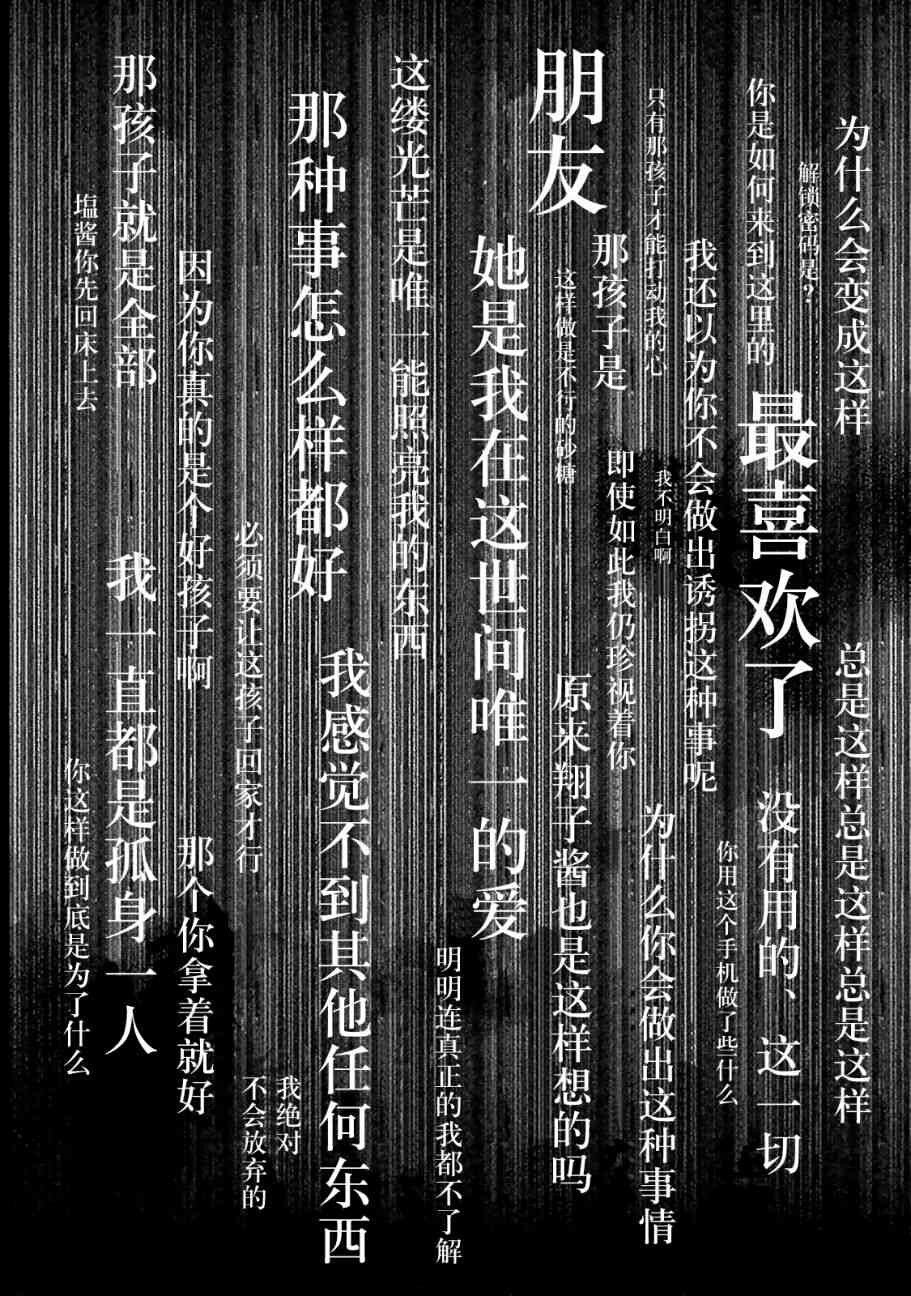 为什么会变成这样
总是这样总是这样总是这样
解锁密码是？
你是如何来到这里的
最喜欢了
没有用的、这一切
你用这个手机做了些什么
我还以为你不会做出诱拐这种事呢
只有那孩子才能打动我的心
我不明白啊
为什么你会做出这种事情
那孩子是
即使如此我仍珍视着你
朋友
这样做是不行的砂糖
原来翔子酱也是这样想的吗
她是我在这世间唯一的爱
明明连真正的我都不了解
这缕光芒是唯一能照亮我的东西
那种事怎么样都好
我感觉不到其他任何东西
我绝对
不会放弃的
必须要让这孩子回家才行
因为你真的是个好孩子啊
那个你拿着就好
那孩子就是全部
我一直都是孤身一人
塩酱你先回床上去
你这样做到底是为了什么